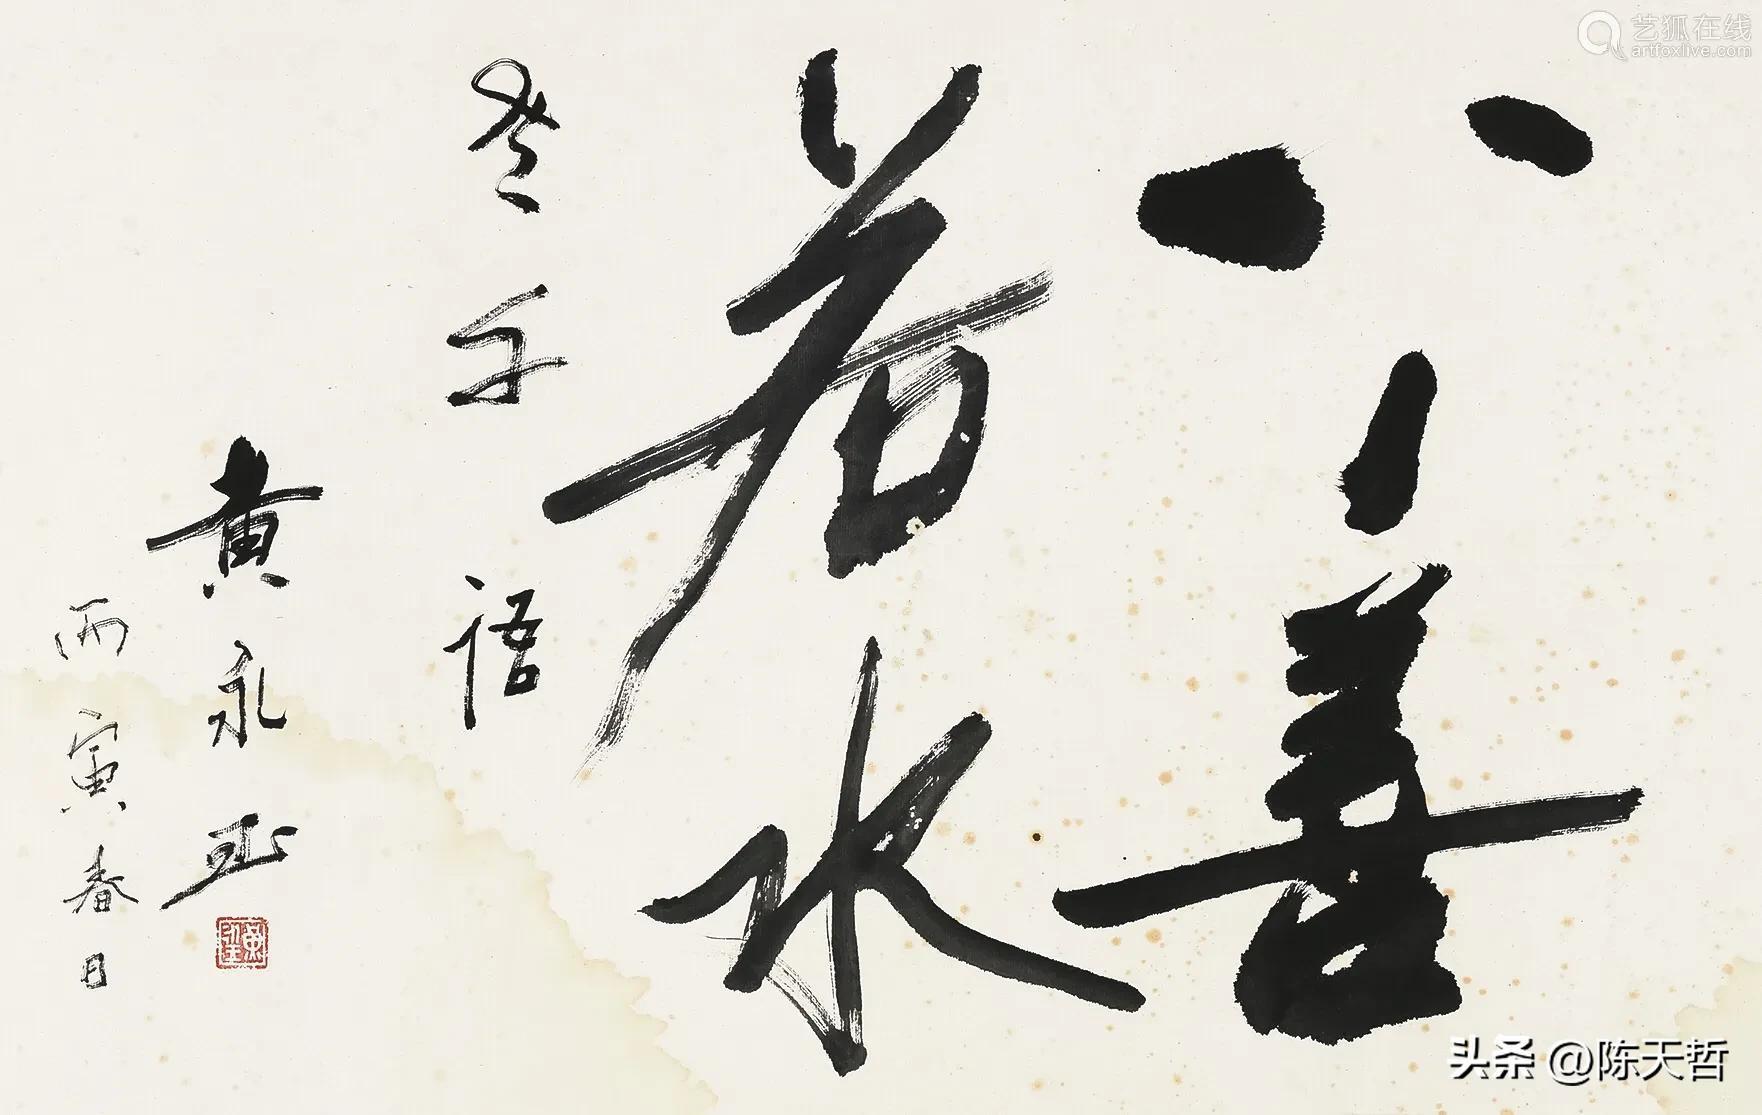 艺狐在线
artfoxlive.com
上善
若水
老子语
黄永玉
丙寅春日
头条 @陈天哲